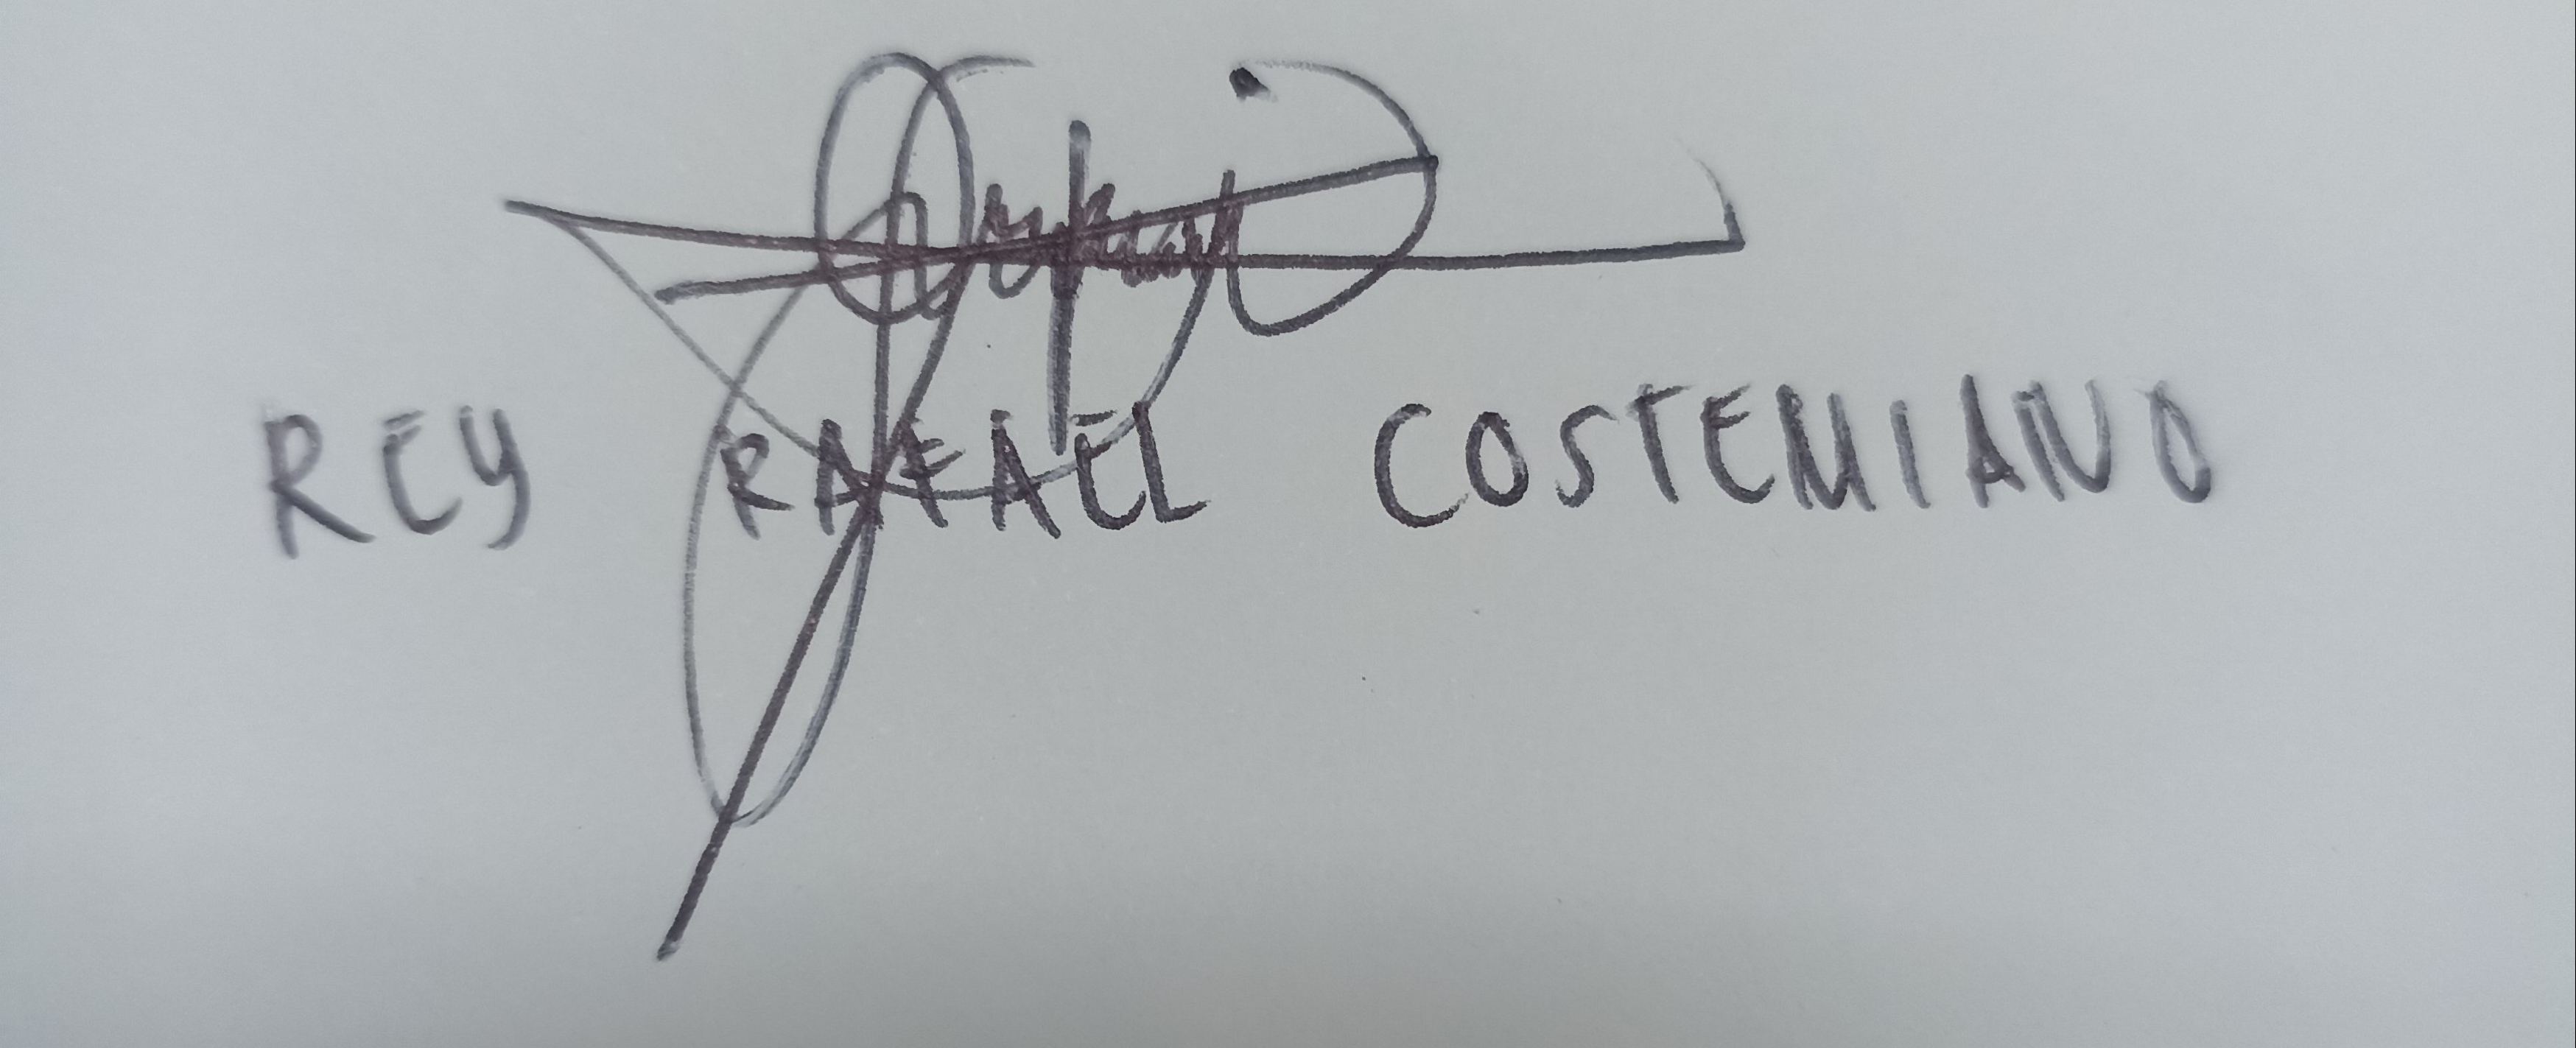 REY RAFAEL COSTEMIANO